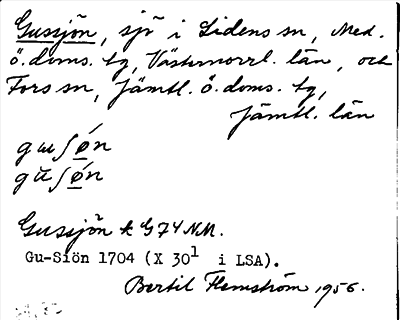 Gussjön, sjö i Lidens sn, Med.
ö. doms. tg, Västernorrl. län, och
Fors sn, Jämtl. ö. doms. tg,
Jämtl. län
guʃǿn
gŭʃǿn
Gussjön k G74 NM.
Gu-Siön 1704 (X 30¹ i LSA).
Bertil Flemström 1956.